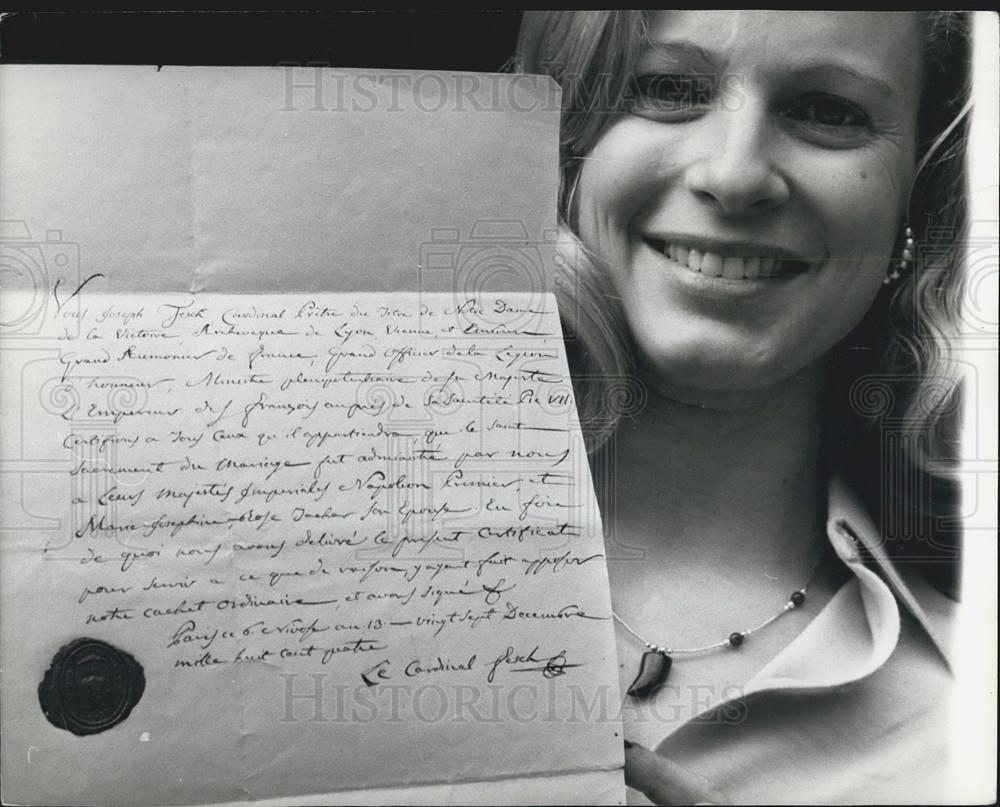 HISTORIC IMAGES
Nous Joseph Fesch Cardinal Prêtre du Titre de Notre Dame
de la Victoire, Archeveque de Lyon Vienne, et Embrun
Grand Aumonier de france, Grand Officier de la Legion
d'honneur, Ministre plenipotentiaire de Sa Majesté
L'Empereur des françois auprès de Sa Sainteté Pie VII.
Certifions a Tous Ceux qu'il appartiendra, que le saint
Sacrement du Mariage fut administré par nous
a Leurs Majestés Imperiales Napoleon Premier, et
Marie-Josephine-Rose Tacher Son Epouse. En foi
de quoi nous avons délivré le present certificat
pour servir a ce que de raison, y ayant fait apposer
notre cachet Ordinaire, et avons signé
Paris ce 6 Nivose an 13 — vingt sept Decembre
mille huit cent quatre
Le Cardinal Fesch
HISTORIC IMAGES